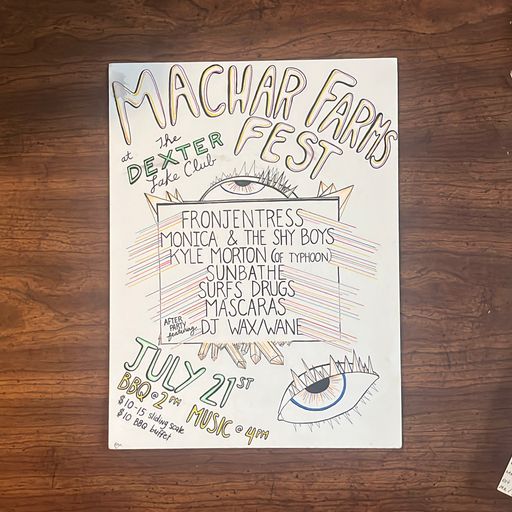 MACHAR FARMS
FEST
at The
DEXTER
Lake Club
FRONJENTRESS
MONICA & THE SHY BOYS
KYLE MORTON (OF TYPHOON)
SUNBATHE
SURFS DRUGS
MASCARAS
AFTER PARTY featuring DJ WAX/WANE
JULY 21ST
BBQ @ 2PM
MUSIC @ 4PM
$10-15 sliding scale
$10 BBQ buffet